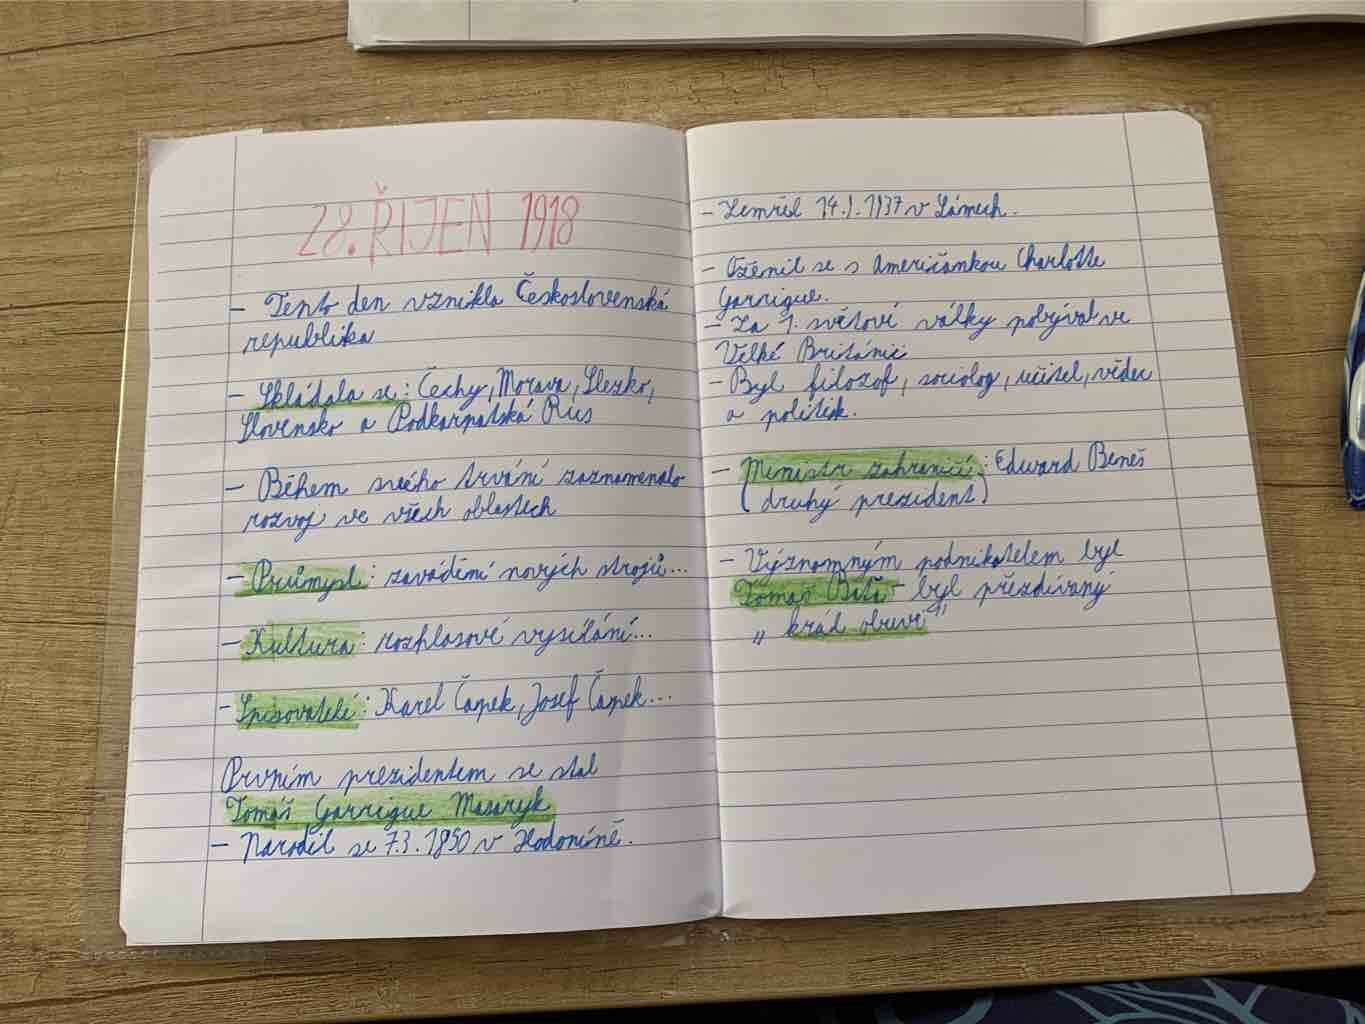 28. ŘIJEN 1918
- Tento den vznikla Československá
republika
- Skládala se: Čechy, Morava, Slezko,
Slovensko a Podkarpatská Rus
- Během svého trvání zaznamenala
rozvoj ve všech oblastech
- Průmysl: zavádění nových strojů...
- Kultura: rozhlasové vysílání...
- Spisovatelé: Karel Čapek, Josef Čapek...
Prvním prezidentem se stal
Tomáš Garrigue Masaryk
- Narodil se 7.3. 1850 v Hodoníně.
- Zemřel 14.9. 1937 v Lánech.
- Oženil se s Američankou Charlotte
Garrigue.
- Za 1. světové války pobýval ve
Velké Británii
- Byl filozof, sociolog, učitel, vědec
a politik.
- Ministr zahraničí: Edward Beneš
(druhý prezident)
- Významným podnikatelem byl
Tomáš Baťa - byl přezdívaný
„ král obuvi"